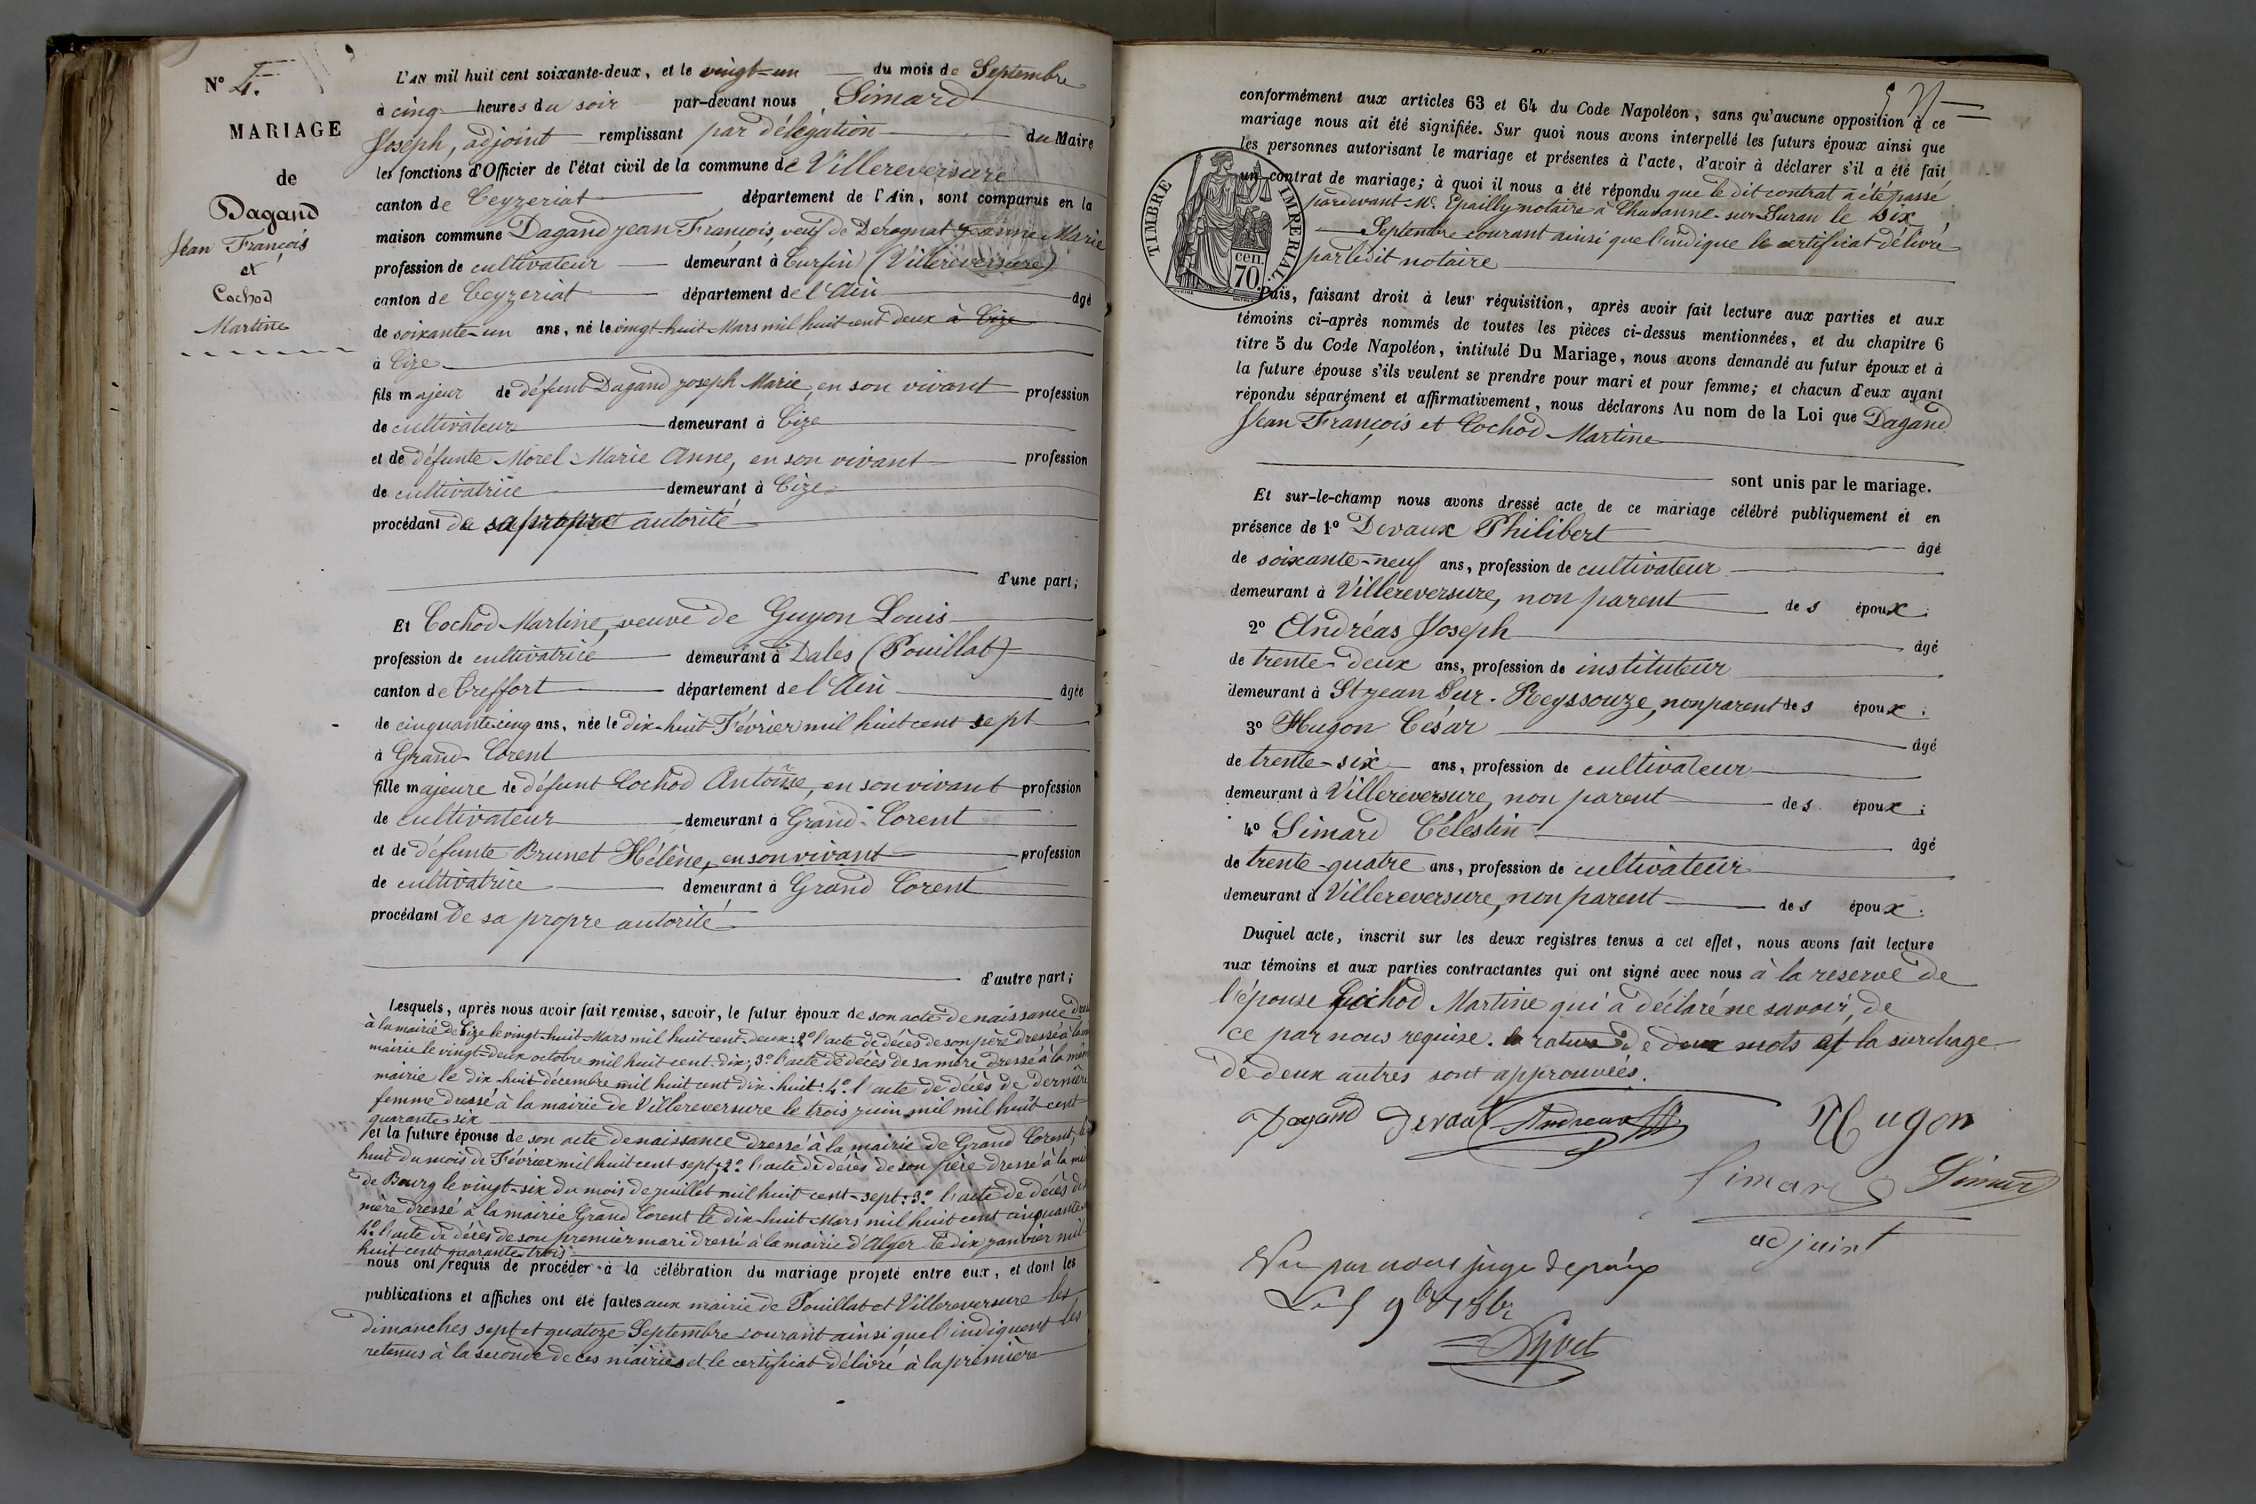 N° 4.
MARIAGE
de
Dagand
Jean François
et
Cochod
Martine
L'AN mil huit cent soixante-deux, et le vingt-un du mois de Septembre
à cinq heures du soir par-devant nous Simard
Joseph, adjoint remplissant par délégation du Maire
les fonctions d'Officier de l'état civil de la commune de Villereversure
canton de Ceyzeriat département de l'Ain, sont comparus en la
maison commune Dagand jean François, veuf de Dérognat Jeanne Marie
profession de cultivateur demeurant à Cursin (Villereversure)
canton de Ceyzeriat département de l'Ain âgé
de soixante-un ans, né le vingt-huit Mars mil huit cent deux à Cize
à Cize
fils majeur de défunt Dagand joseph Marie, en son vivant profession
de cultivateur demeurant à Cize
et de défunte Morel Marie Anne, en son vivant profession
de cultivatrice demeurant à Cize
procédant de sa propre autorité
d'une part;
Et Cochod Martine, veuve de Guyon Louis
profession de cultivatrice demeurant à Dales (Pouillat)
canton de Treffort département de l'Ain âgée
de cinquante-cinq ans, née le dix-huit Février mil huit cent sept
à Grand Corent
fille majeure de défunt Cochod Antoine, en son vivant profession
de cultivateur demeurant à Grand-Corent
et de défunte Brunet Hélène, en son vivant profession
de cultivatrice demeurant à Grand Corent
procédant de sa propre autorité
d'autre part;
Lesquels, après nous avoir fait remise, savoir, le futur époux de son acte de naissance
à la mairie de Cize le vingt-huit Mars mil huit cent-deux; 2° l'acte de décès de son père dressé à la
mairie le vingt-deux octobre mil huit cent-dix; 3° l'acte de décès de sa mère dressé à la même
mairie le dix-huit décembre mil huit cent dix-huit; 4° l'acte de décès de dernière
femme dressé à la mairie de Villereversure le trois juin mil mil huit cent
quarante-six
et la future épouse de son acte de naissance dressé à la mairie de Grand Corent, le
huit du mois de Février mil huit cent sept; 2° l'acte de décès de son père dressé à la
de Bourg le vingt-six du mois de juillet mil huit cent-sept; 3° l'acte de décès de
mère dressé à la mairie Grand Corent le dix-huit Mars mil huit cent cinquante
4° l'acte de décès de son premier mari dressé à la mairie d'Alger le dix janvier mil
huit cent quarante-trois
nous ont requis de procéder à la célébration du mariage projeté entre eux, et dont les
publications et affiches ont été faites aux mairie de Pouillat et Villereversure les
dimanches sept et quatorze Septembre courant ainsi que l'indiquent les
retenus à la seconde de ces mairies et le certificat délivré à la première
conformément aux articles 63 et 64 du Code Napoléon, sans qu'aucune opposition à ce
mariage nous ait été signifiée. Sur quoi nous avons interpellé les futurs époux ainsi que
les personnes autorisant le mariage et présentes à l'acte, d'avoir à déclarer s'il a été fait
un contrat de mariage; à quoi il nous a été répondu que le dit contrat a été passé
pardevant Me. Epailly notaire à Chavanne-sur-Suran le dix
Septembre courant ainsi que l'indique le certificat délivré
par le dit notaire
TIMBRE IMPERIAL
70 cen.
Puis, faisant droit à leur réquisition, après avoir fait lecture aux parties et aux
témoins ci-après nommés de toutes les pièces ci-dessus mentionnées, et du chapitre 6
titre 5 du Code Napoléon, intitulé Du Mariage, nous avons demandé au futur époux et à
la future épouse s'ils veulent se prendre pour mari et pour femme; et chacun d'eux ayant
répondu séparément et affirmativement, nous déclarons Au nom de la Loi que Dagand
Jean François et Cochod Martine
sont unis par le mariage.
Et sur-le-champ nous avons dressé acte de ce mariage célébré publiquement et en
présence de 1° Devaux Philibert âgé
de soixante-neuf ans, profession de cultivateur
demeurant à Villereversure, non parent des époux;
2° Andréas Joseph âgé
de trente-deux ans, profession de instituteur
demeurant à St jean Sur-Reyssouze, non parent des époux;
3° Hugon César âgé
de trente-six ans, profession de cultivateur
demeurant à Villereversure, non parent des époux;
4° Simard Célestin âgé
de trente-quatre ans, profession de cultivateur
demeurant à Villereversure, non parent des époux.
Duquel acte, inscrit sur les deux registres tenus à cet effet, nous avons fait lecture
aux témoins et aux parties contractantes qui ont signé avec nous à la reserve de
l'épouse Cochod Martine qui a déclaré ne savoir, de
ce par nous requise. la rature de deux mots et la surchage
de deux autres sont approuvées.
Dagand Devaux Andreas Hugon
Simard Simard
adjoint
Vu par nous juge de paix